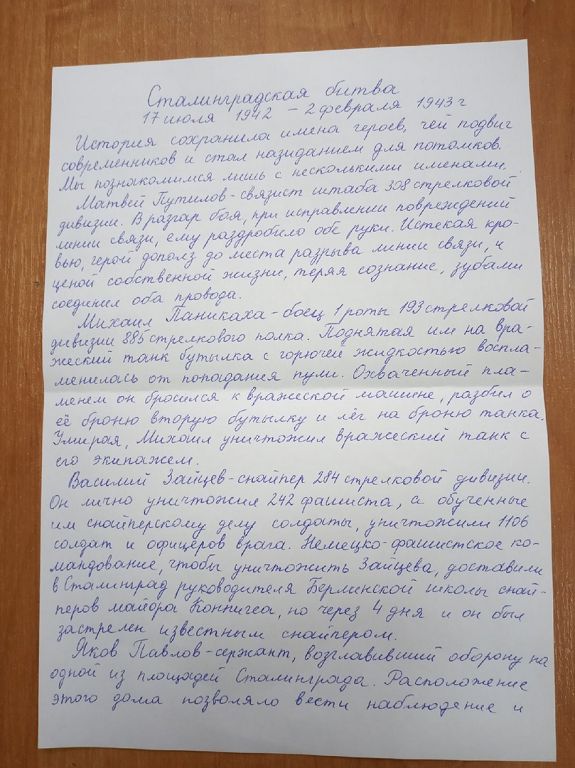 Сталинградская битва
17 июля 1942 – 2 февраля 1943 г
История сохранила имена героев, чей подвиг
современников и стал назиданием для потомков.
Мы познакомимся лишь с несколькими именами.
Матвей Путилов-связист штаба 308 стрелковой
дивизии. В разгар боя, при исправлении повреждений
линии связи, ему раздробило обе руки. Истекая кро-
вью, герой дополз до места разрыва линии связи, и
ценой собственной жизни, теряя сознание, зубами
соединил оба провода.
Михаил Паникаха-боец 1 роты 193 стрелковой
дивизии 885 стрелкового полка. Поднятая им на вра-
жеский танк бутылка с горючей жидкостью воспла-
менилась от попадания пули. Охваченный пла-
менем он бросился к вражеской машине, разбил о
её броню вторую бутылку и лёг на броню танка.
Умирая, Михаил уничтожил вражеский танк с
его экипажем.
Василий Зайцев-снайпер 284 стрелковой дивизии.
Он лично уничтожил 242 фашиста, а обученные
им снайперскому делу солдаты, уничтожили 1106
солдат и офицеров врага. Немецко-фашистское ко-
мандование, чтобы уничтожить Зайцева, доставили
в Сталинград руководителя Берлинской школы снай-
перов майора Коннигса, но через 4 дня и он был
застрелен известным снайпером.
Яков Павлов-сержант, возглавивший оборону на
одной из площадей Сталинграда. Расположение
этого дома позволяло вести наблюдение и